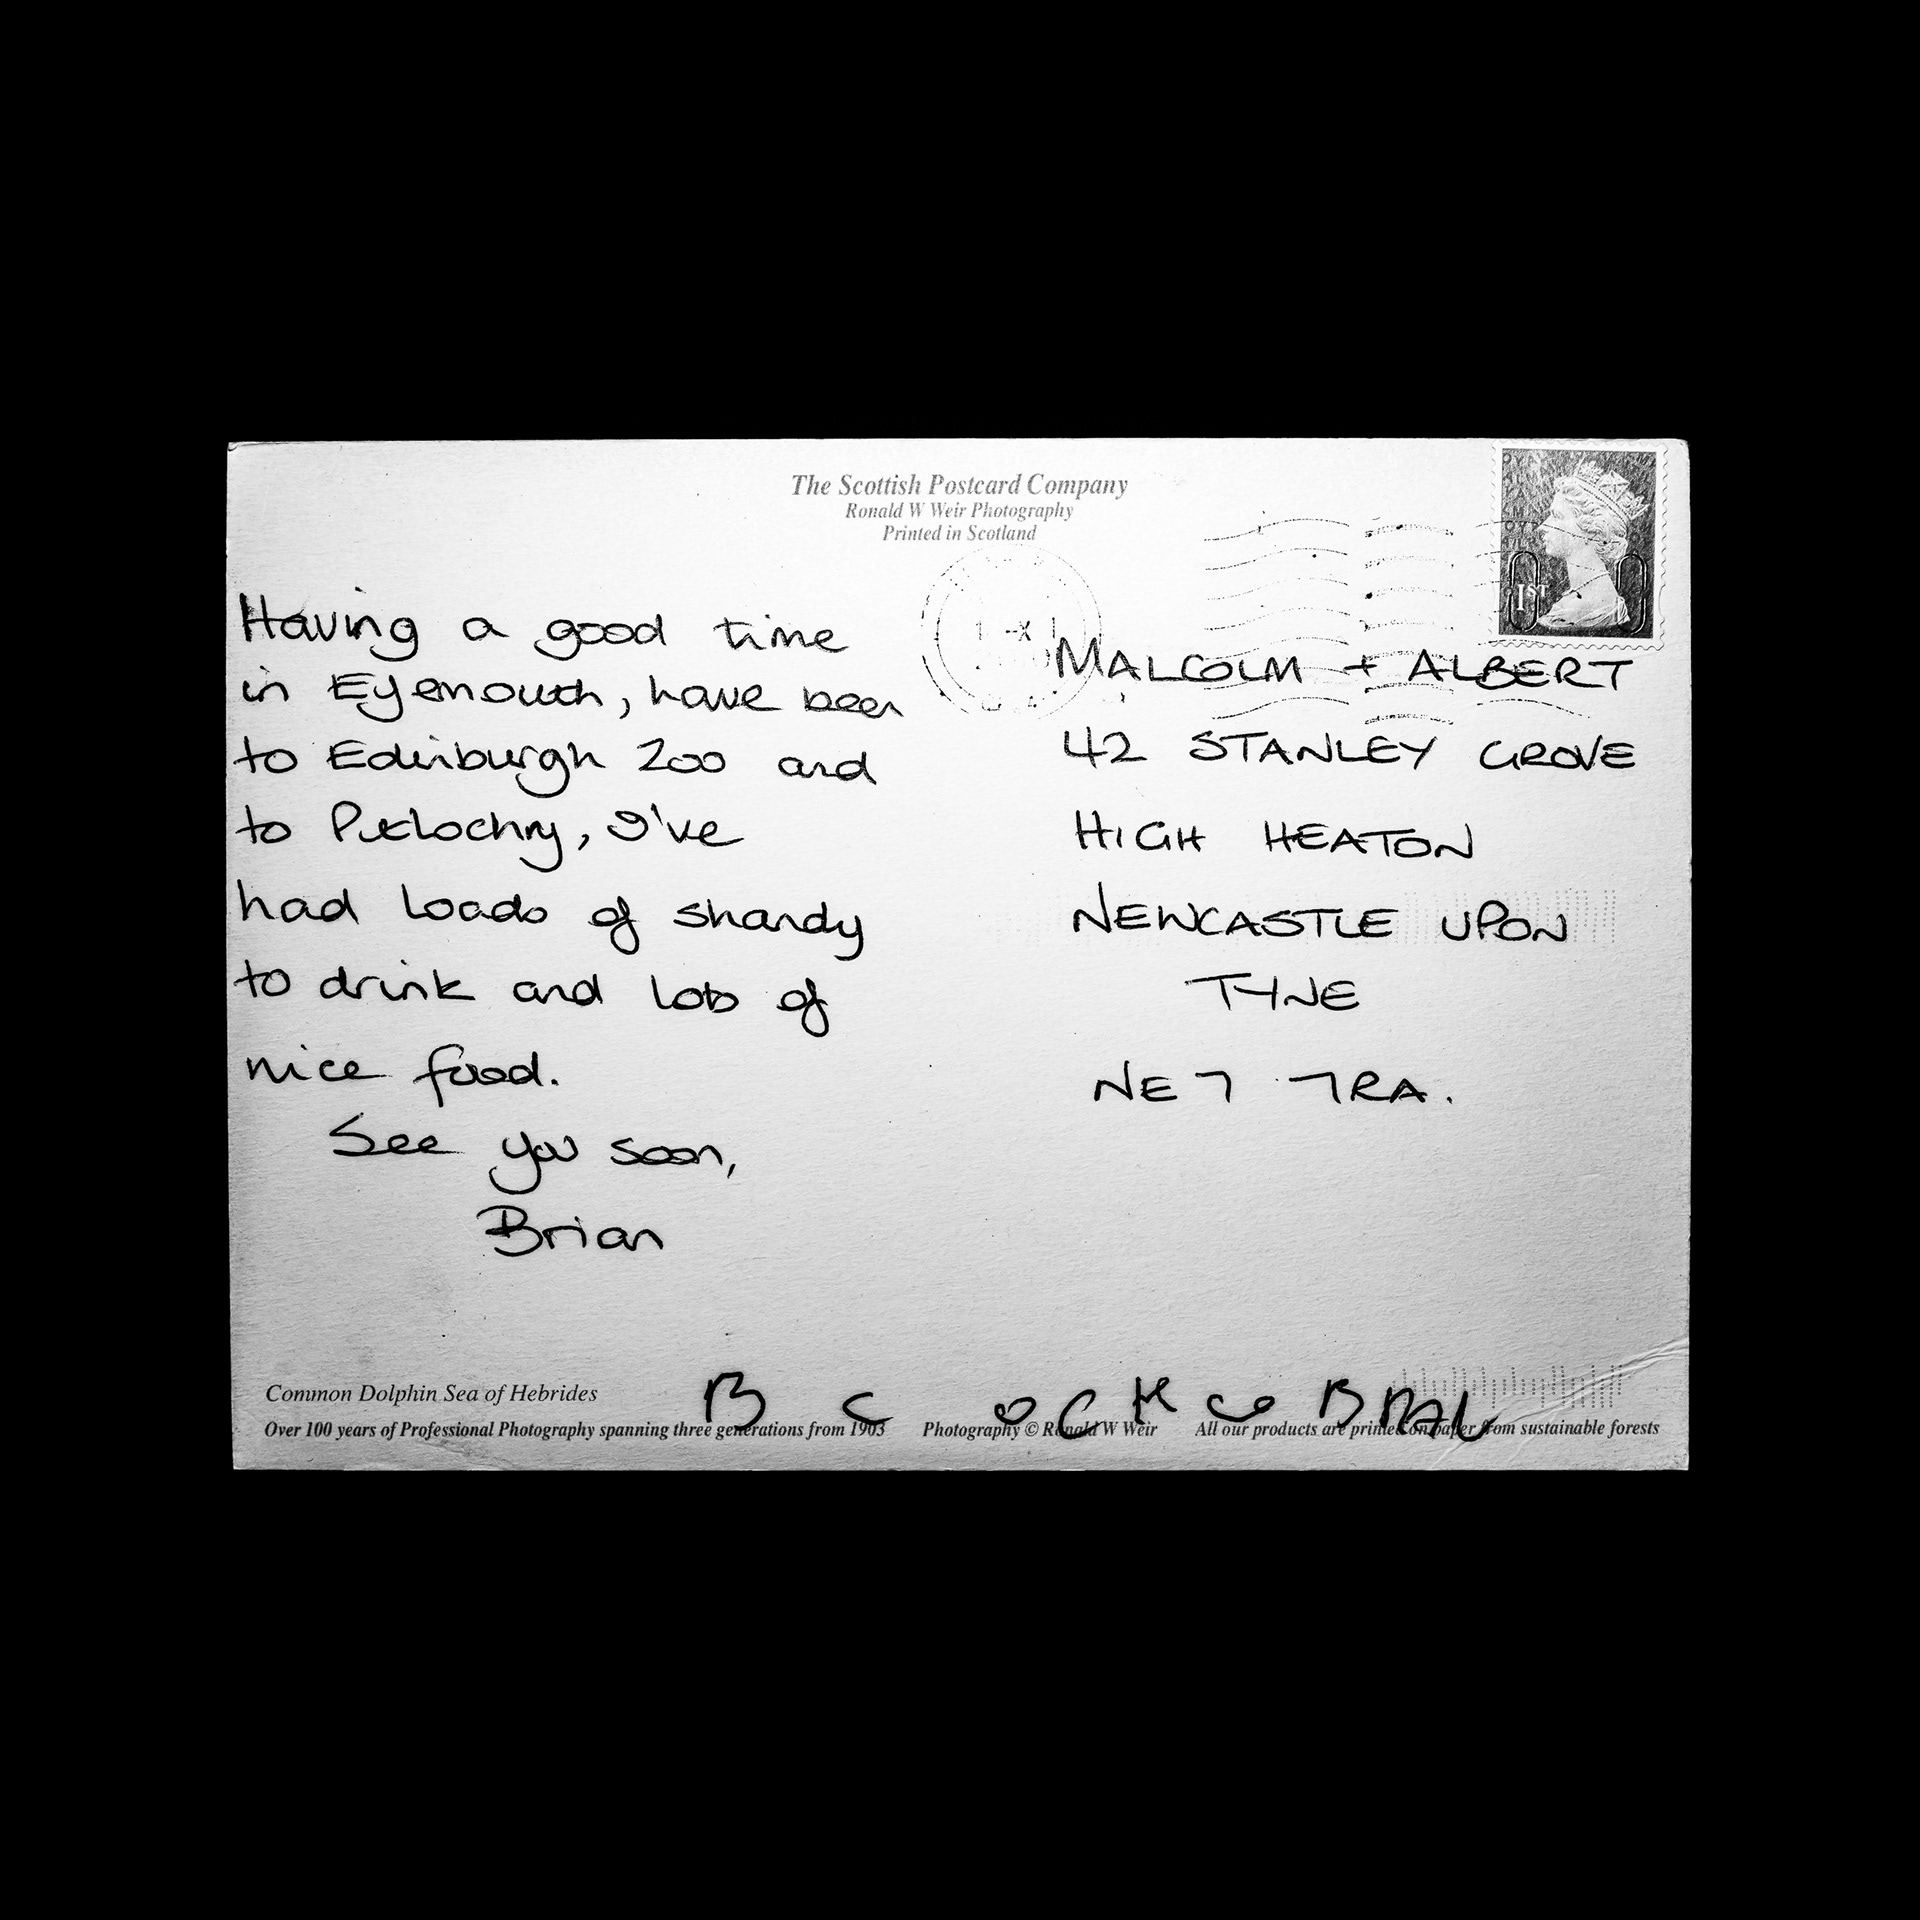 The Scottish Postcard Company
Ronald W Weir Photography
Printed in Scotland
1ST
Having a good time
in Eyemouth, have been
to Edinburgh Zoo and
to Pitlochry, I've
had loads of shandy
to drink and lots of
nice food.
See you soon,
Brian
MALCOLM + ALBERT
42 STANLEY GROVE
HIGH HEATON
NEWCASTLE UPON
TYNE
NE7 7RA.
Common Dolphin Sea of Hebrides
Over 100 years of Professional Photography spanning three generations from 1903 Photography © Ronald W Weir All our products are printed on paper from sustainable forests